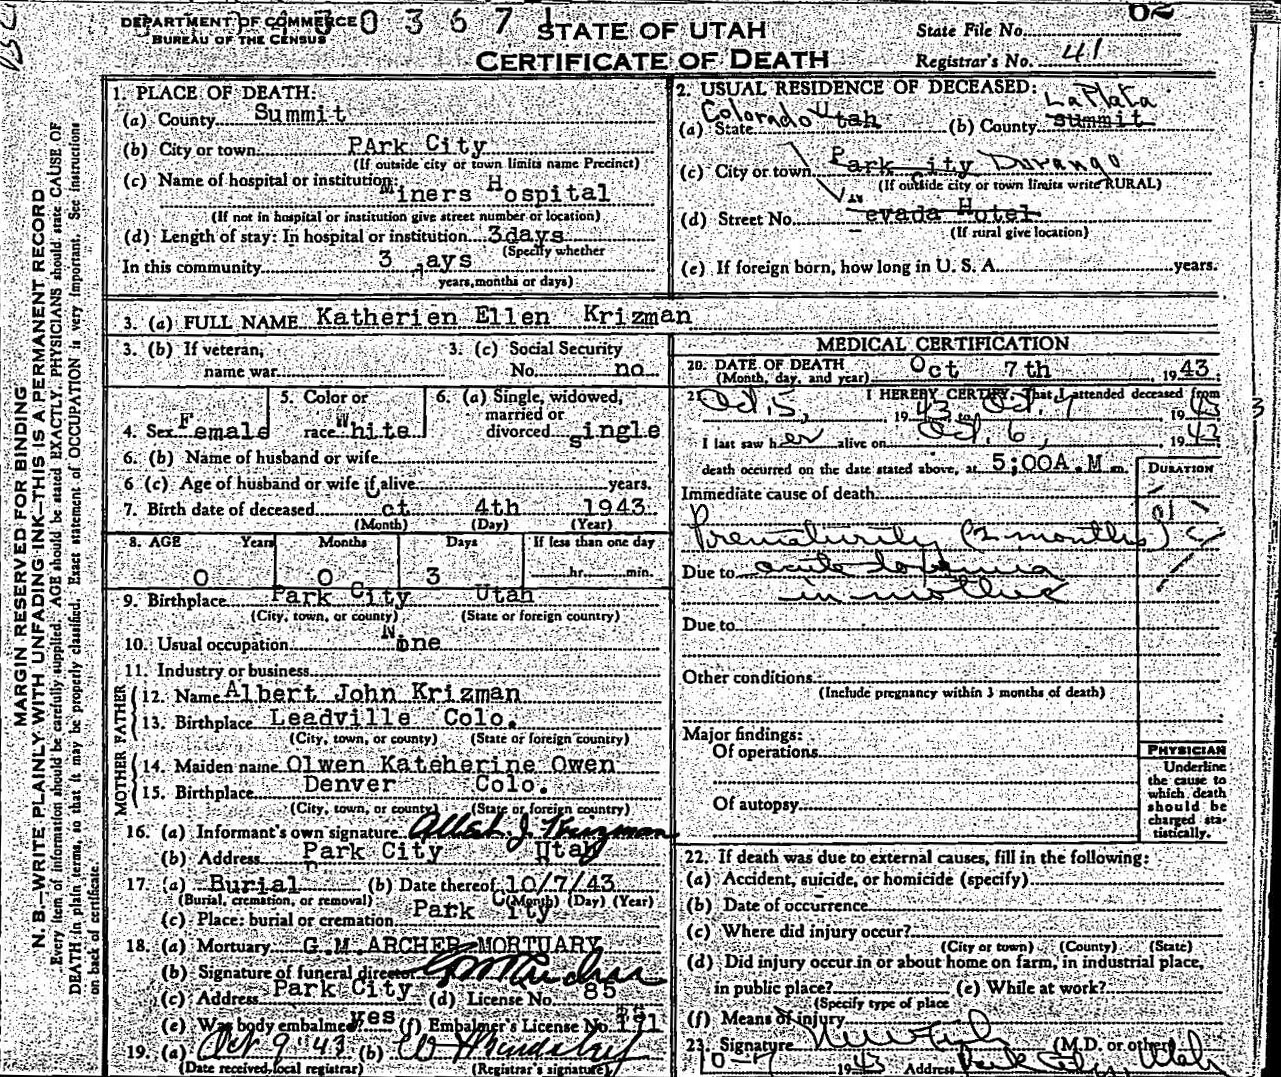 DEPARTMENT OF COMMERCE
BUREAU OF THE CENSUS
STATE OF UTAH
CERTIFICATE OF DEATH
State File No. 62
Registrar's No. 41
MARGIN RESERVED FOR BINDING
N. B.—WRITE PLAINLY WITH UNFADING INK—THIS IS A PERMANENT RECORD
Every item of information should be carefully supplied. AGE should be stated EXACTLY. PHYSICIANS should state CAUSE OF
DEATH in plain terms, so that it may be properly classified. Exact statement of OCCUPATION is very important. See instructions
on back of certificate.
1. PLACE OF DEATH:
(a) County Summit
(b) City or town PArk City
(If outside city or town limits name Precinct)
(c) Name of hospital or institution: Miners Hospital
(If not in hospital or institution give street number or location)
(d) Length of stay: In hospital or institution 3days
(Specify whether
In this community 3 days
years, months or days)
2. USUAL RESIDENCE OF DECEASED:
(a) State Colorado Utah (b) County La Plata Summit
(c) City or town Park City Durango
(If outside city or town limits write RURAL)
(d) Street No. Nevada Hotel
(If rural give location)
(e) If foreign born, how long in U. S. A. years.
3. (a) FULL NAME Katherien Ellen Krizman
3. (b) If veteran, name war
3. (c) Social Security No. no
4. Sex Female
5. Color or race White
6. (a) Single, widowed, married or divorced single
6. (b) Name of husband or wife
6 (c) Age of husband or wife if alive years.
7. Birth date of deceased Oct 4th 1943
(Month) (Day) (Year)
8. AGE Years Months Days If less than one day
0 0 3 hr. min.
9. Birthplace Park City Utah
(City, town, or county) (State or foreign country)
10. Usual occupation None
11. Industry or business
FATHER
12. Name Albert John Krizman
13. Birthplace Leadville Colo.
(City, town, or county) (State or foreign country)
MOTHER
14. Maiden name Olwen Kateherine Owen
15. Birthplace Denver Colo.
(City, town, or county) (State or foreign country)
16. (a) Informant's own signature Albert J Krizman
(b) Address Park City Utah
17. (a) Burial (b) Date thereof 10/7/43
(Burial, cremation, or removal) (Month) (Day) (Year)
(c) Place: burial or cremation Park City
18. (a) Mortuary G.M.ARCHER MORTUARY
(b) Signature of funeral director G M Archer
(c) Address Park City (d) License No. 85
(e) Was body embalmed? yes (f) Embalmer's License No.
19. (a) Oct 9 '43 (b)
(Date received local registrar) (Registrar's signature)
MEDICAL CERTIFICATION
20. DATE OF DEATH Oct 7th , 1943
(Month, day, and year)
21. I HEREBY CERTIFY, That I attended deceased from
Oct. 5, 1943 to Oct. 7 1943
I last saw her alive on Oct. 6, , 1943
death occurred on the date stated above, at 5;00A.M m.
DURATION
Immediate cause of death
Prematurity (2 months)
Due to acute
in mother
Due to
Other conditions
(Include pregnancy within 3 months of death)
Major findings:
Of operations
Of autopsy
PHYSICIAN
Underline
the cause to
which death
should be
charged sta-
tistically.
22. If death was due to external causes, fill in the following:
(a) Accident, suicide, or homicide (specify)
(b) Date of occurrence
(c) Where did injury occur?
(City or town) (County) (State)
(d) Did injury occur in or about home on farm, in industrial place,
in public place? (e) While at work?
(Specify type of place
(f) Means of injury
23. Signature (M.D. or other)
10-7 1943 Address Park City, Utah